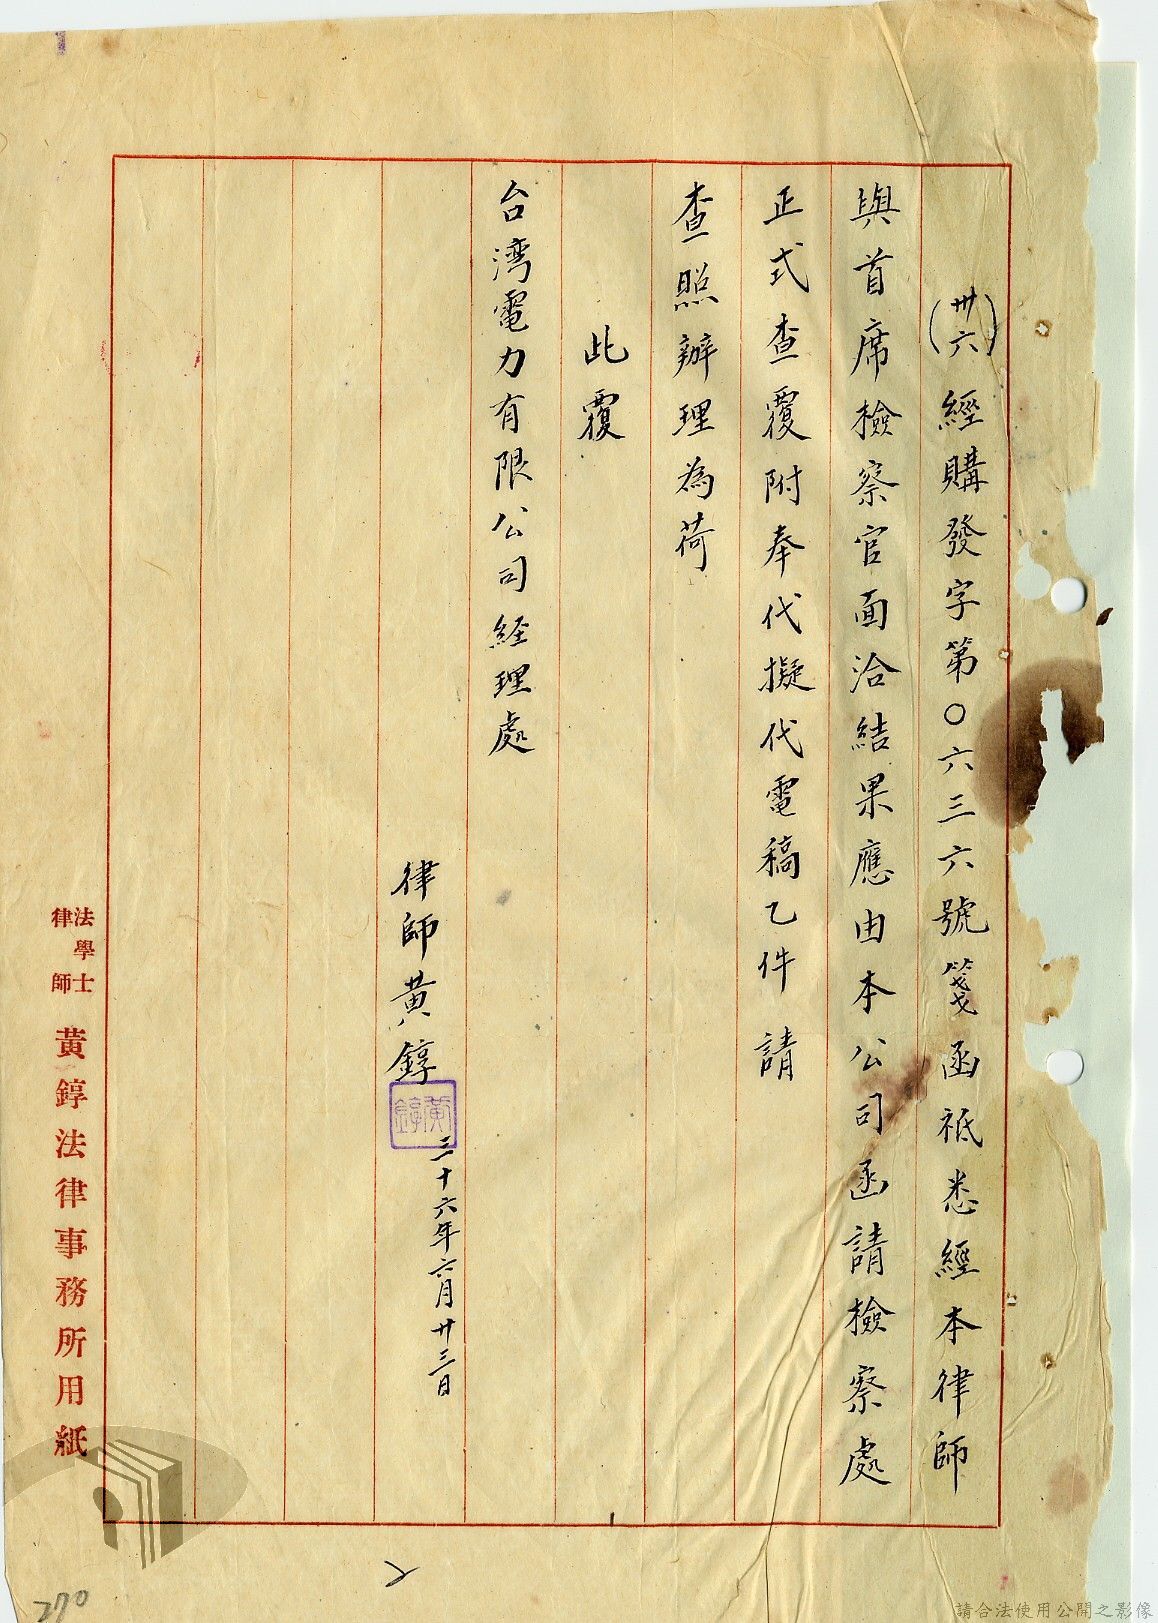 (卅六)經購發字第〇六三六號箋函祗悉經本律師
與首席檢察官面洽結果應由本公司函請檢察處
正式查覆附奉代擬代電稿乙件　請
查照辦理為荷
此覆
台湾電力有限公司経理處
律師黃錞
黃錞
三十六年六月廿三日
法學士
律師
黃錞法律事務所用紙
270
請合法使用公開之影像